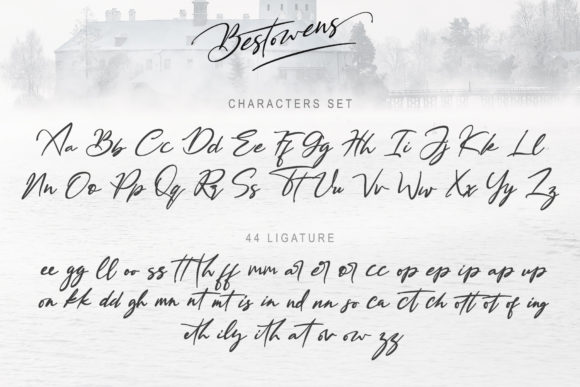 Bestowens
CHARACTERS SET
Aa Bb Cc Dd Ee Ff Gg Hh Ii Jj Kk Ll
Nn Oo Pp Qq Rr Ss Tt Uu Vv Ww Xx Yy Zz
44 LIGATURE
ee gg ll oo ss tt th ff mm ar er or cc op ep ip ap up
on kk dd gh mn nt mt is in nd nn so ca ct ch ott ot of ing
eth ily ith at ov ow zz